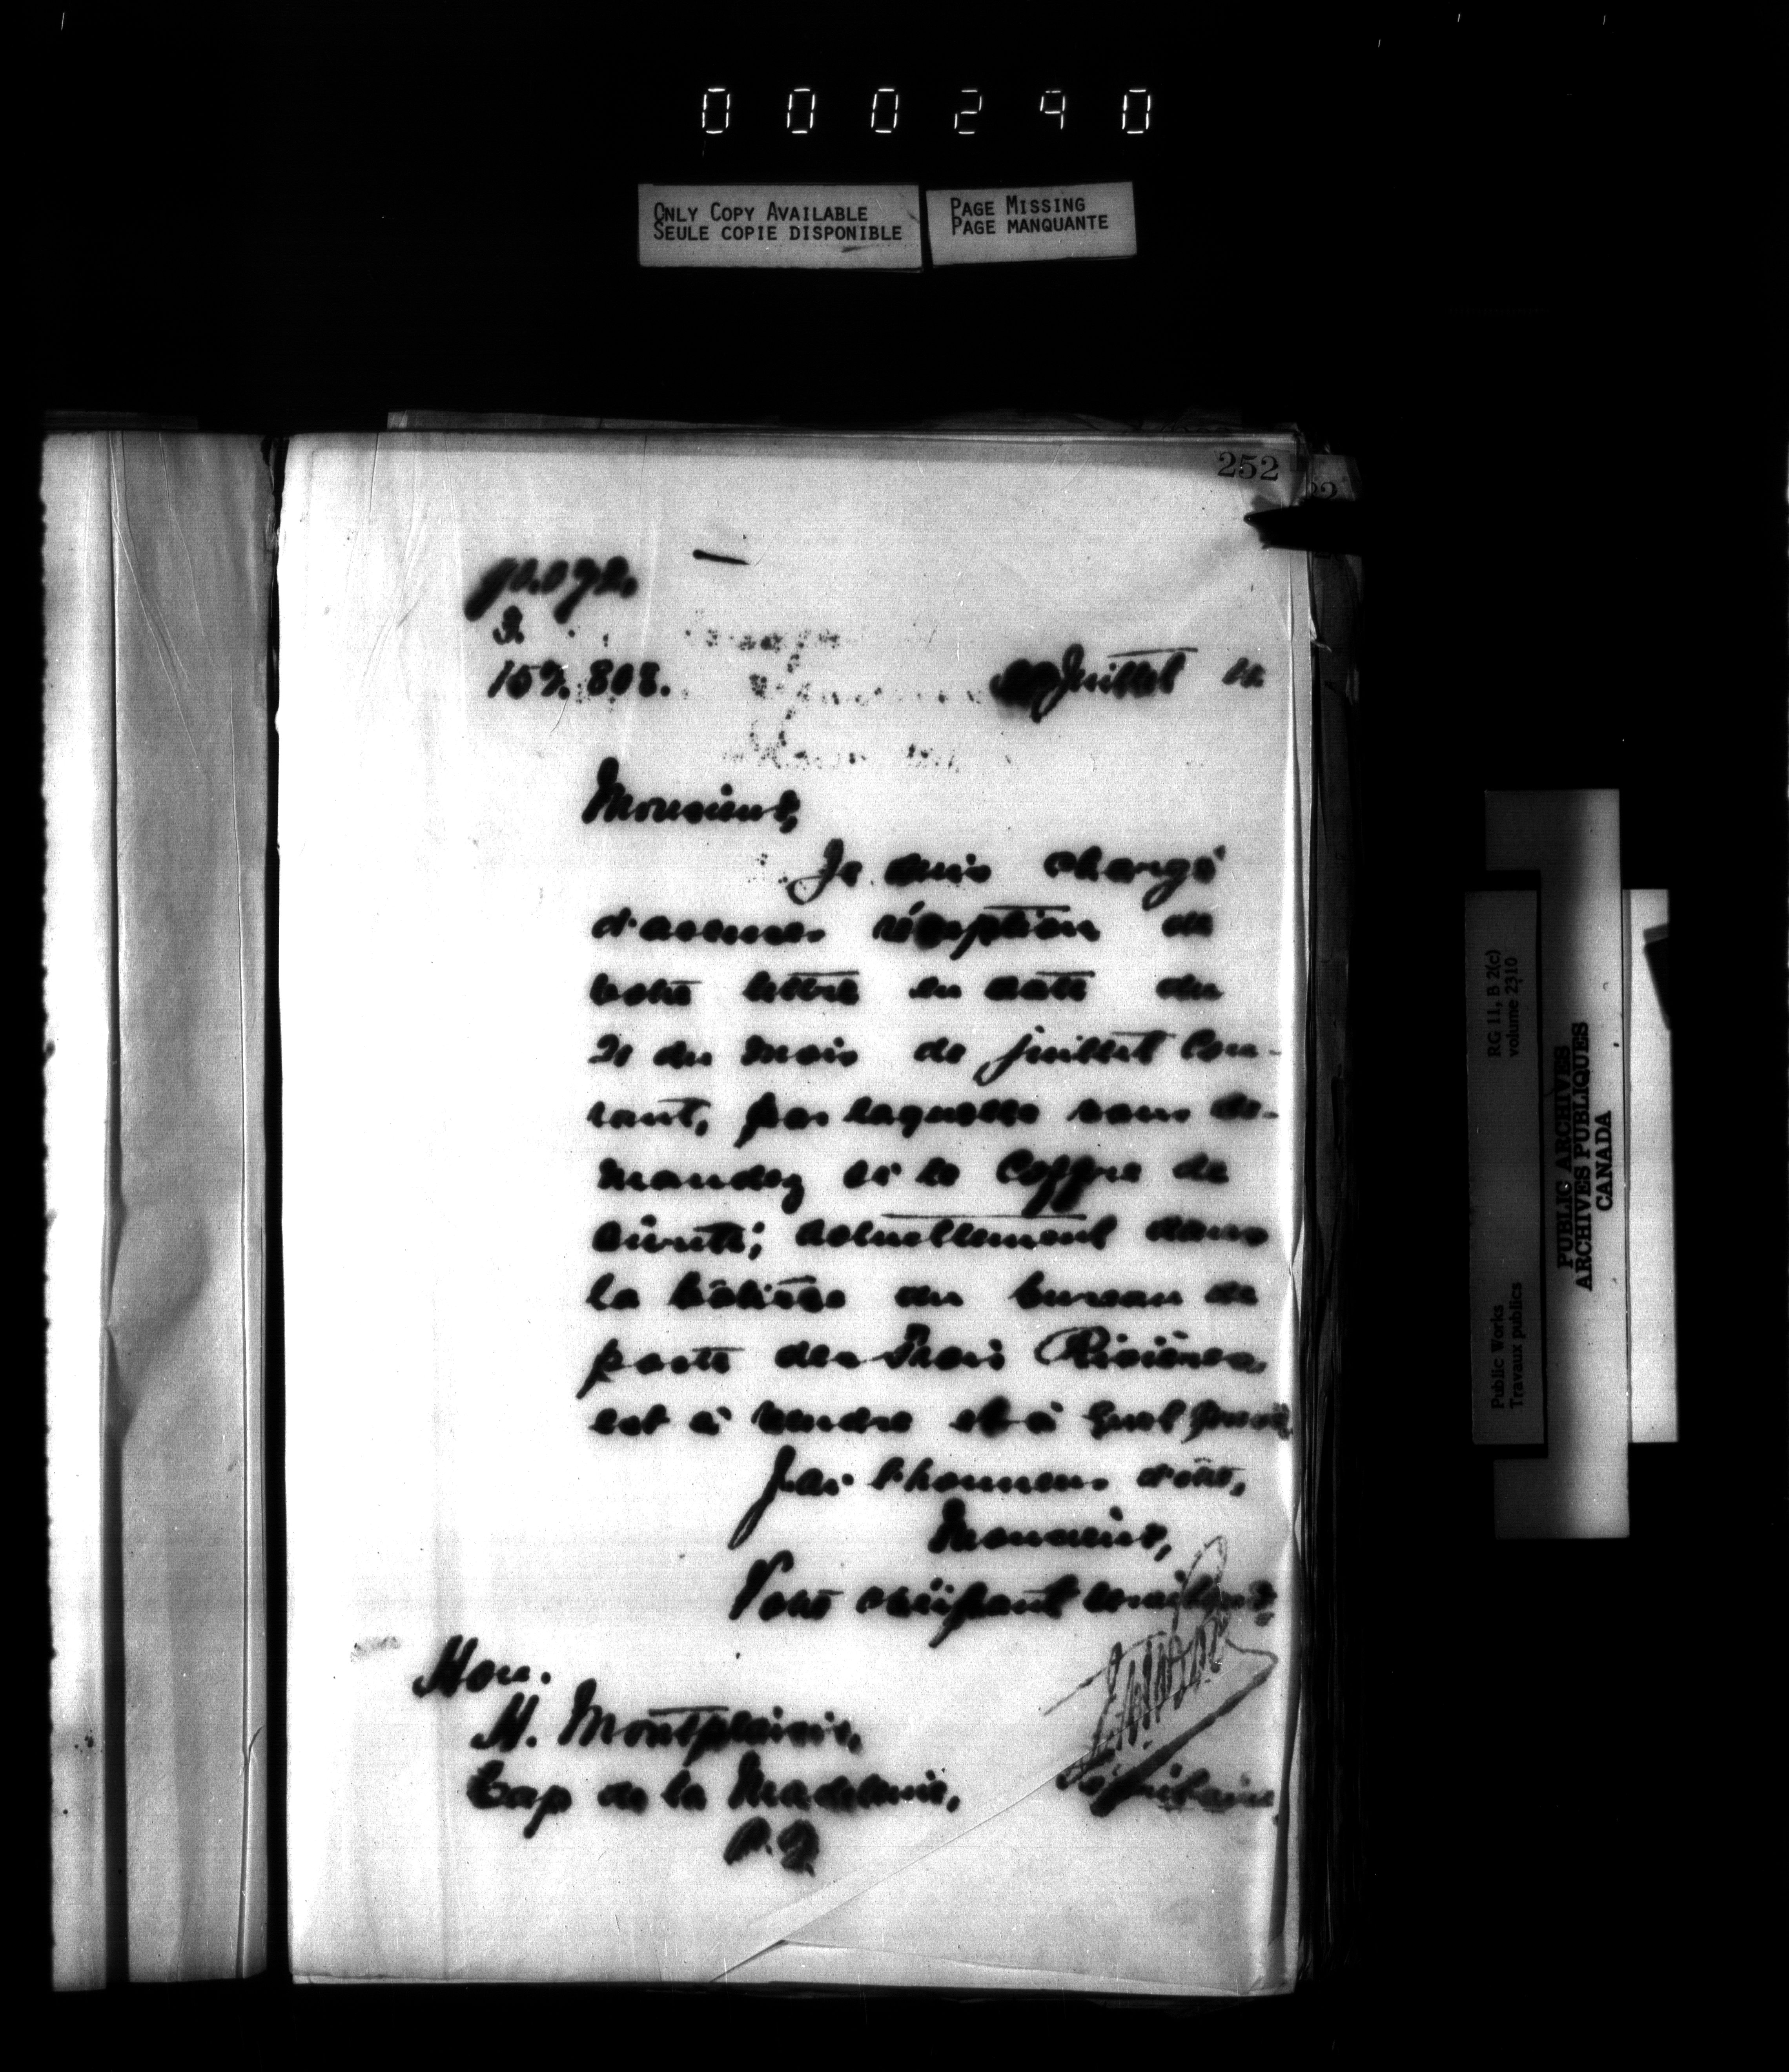 000290
ONLY COPY AVAILABLE
SEULE COPIE DISPONIBLE
PAGE MISSING
PAGE MANQUANTE
252
3.
157.808.
Juillet
Monsieur,
Je suis chargé
d'accuser réception de
votre lettre en date du
du mois de juillet cou-
rant, par laquelle vous de-
mandez si le coffre de
sûreté, actuellement dans
la bâtisse du bureau de
poste des Trois Rivières
est à vendre et à quel prix
J'ai l'honneur d'être,
Monsieur,
Votre obéissant serviteur
Hon.
H. Montplaisir,
Cap de la Madeleine,
P.Q.
Secrétaire
RG 11, B 2(c)
volume 2310
Public Works
Travaux publics
PUBLIC ARCHIVES
ARCHIVES PUBLIQUES
CANADA